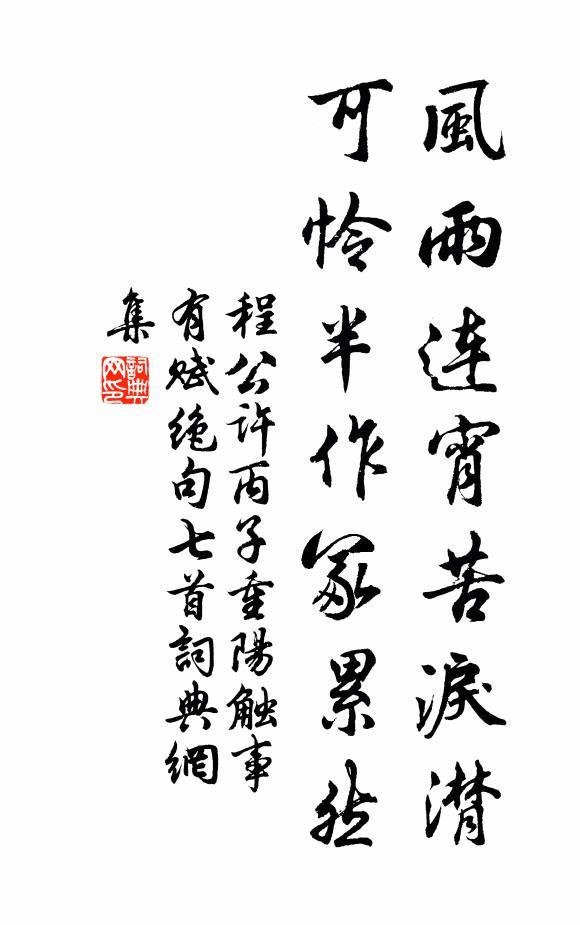 風雨連宵苦淚潸
可怜半作冢累然
程公許丙子重陽触事
有赋绝句七首詞典網
集
詞典網印